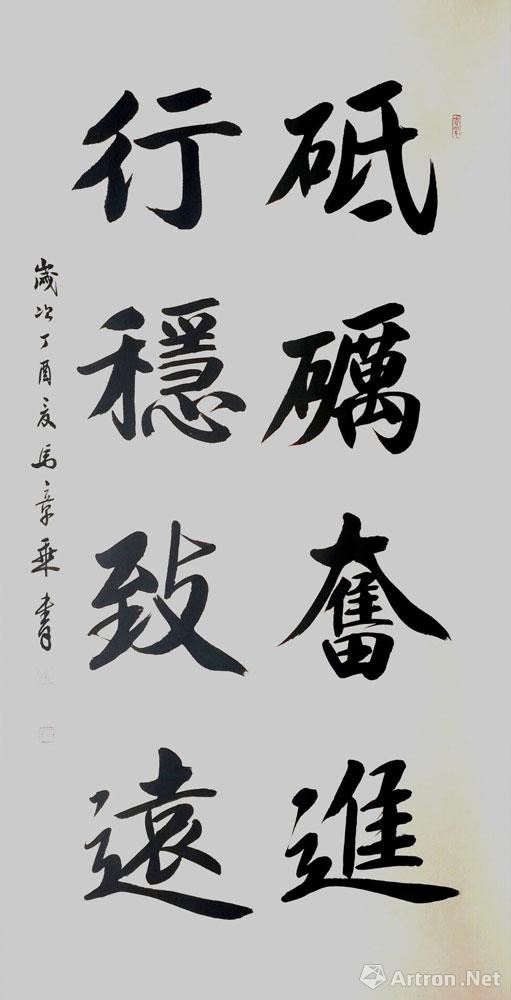 砥礪奮進
行穩致遠
歲次丁酉夏馬章乘書
Artron.Net